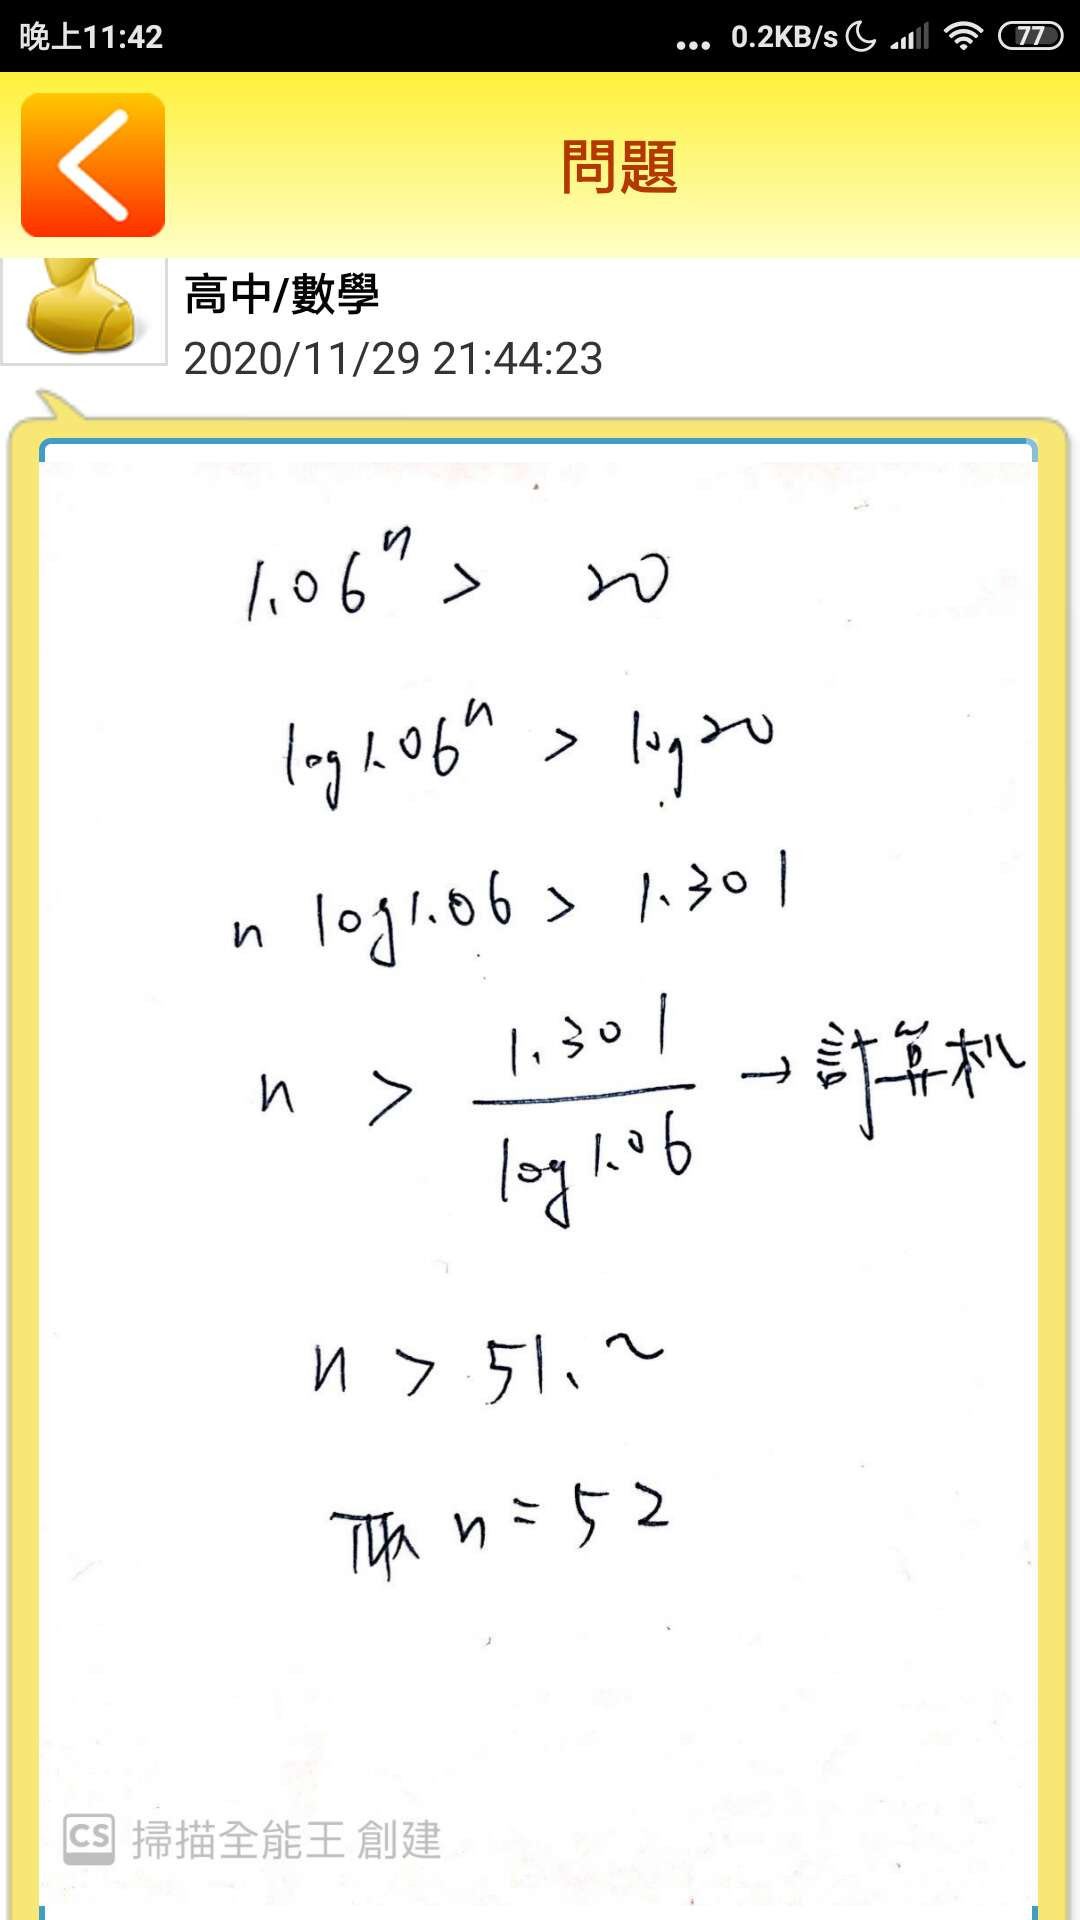 晚上11:42
... 0.2KB/s 77
問題
高中/數學
2020/11/29 21:44:23
1.06ⁿ > 20
log1.06ⁿ > log20
n log1.06 > 1.301
n > 1.301 / log1.06 → 計算机
n > 51.~
取 n = 52
CS 掃描全能王 創建